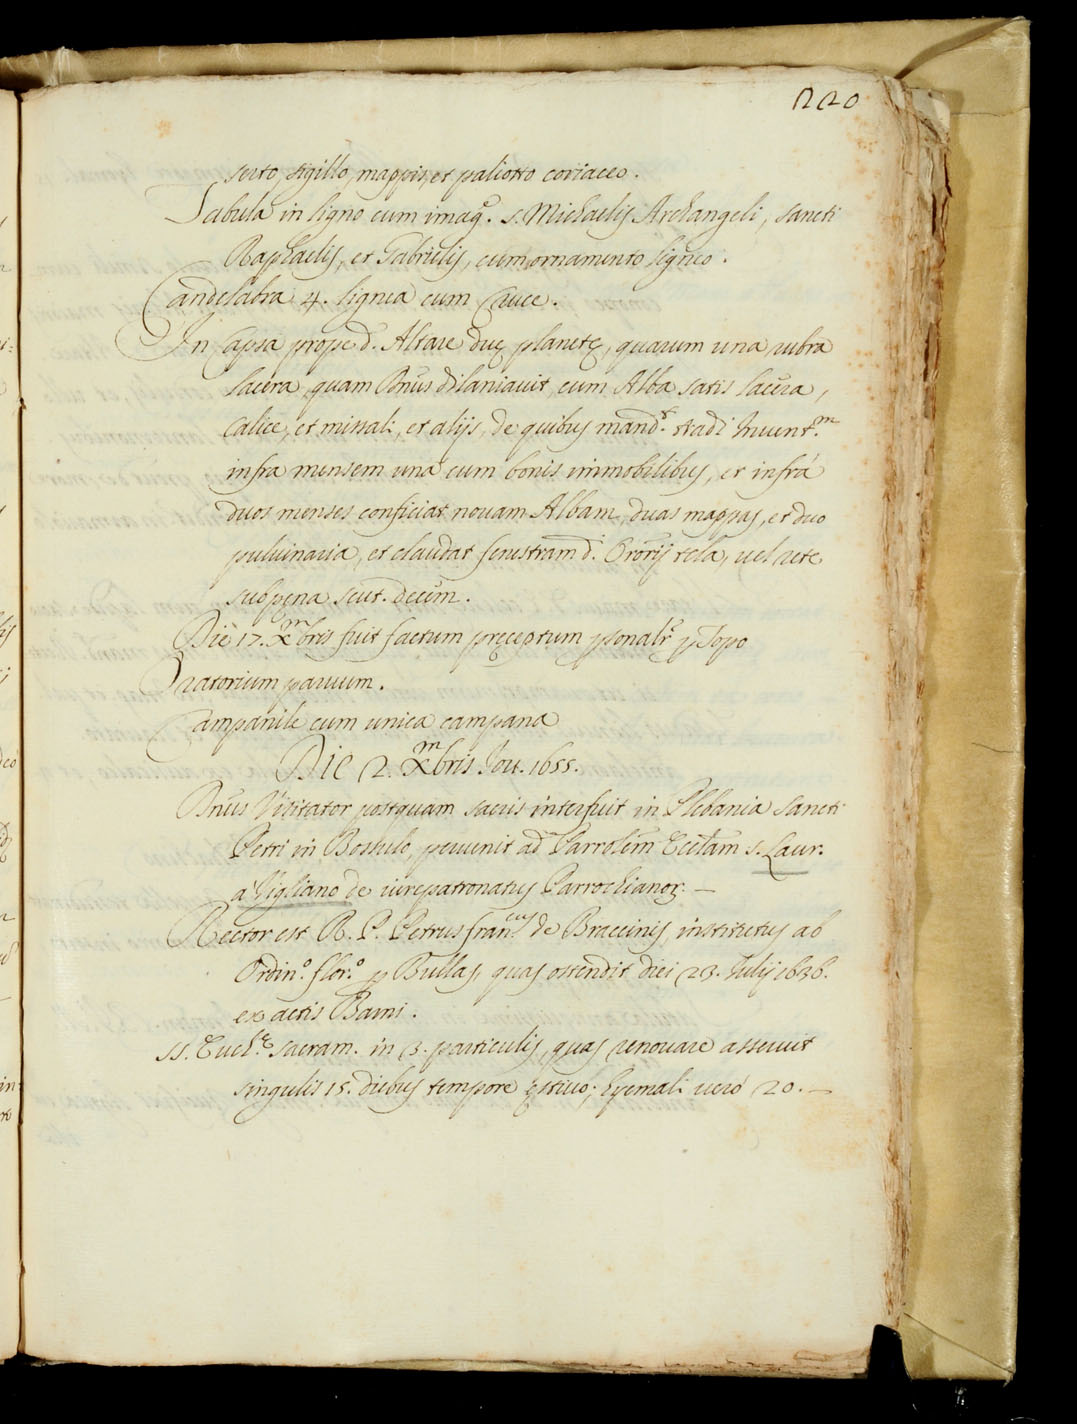 220
serto, sigillo, mappis, et paliotto coriaceo.
Tabula in ligno cum imag.e s. Michaelis Archangeli, sancti
Raphaelis, et Gabrielis, cum ornamento ligneo.
Candelabra 4. lignea cum Cruce.
In Capsa prope d. Altare duę planetę, quarum una rubra
lacera, quam Dnus dilaniauit, cum Alba satis lacera,
Calice, et missali, et alijs, de quibus mand.t tradi Inuent.m
infra mensem una cum bonis immobilibus, et infrà
duos menses conficiat nouam Albam, duas mappas, et duo
puluinaria, et claudat fenestram d.i Ororij tela, uel rete
sub pęna scut. decem.
Die 17. Xmbris fuit factum pręceptum psonalr p Topo
Oratorium paruum.
Campanile cum unica campana
Die 2. Xmbris Jou. 1655.
Dnus Visitator postquam sacris interfuit in Plebania Sancti
Petri in Bossulo, peruenit ad Parrolem Ecclam s. Laur.
à Vigliano de iurepatronatus Parrochianor. —
Rector est R. P. Petrus fran.cus de Braccinis, institutus ab
Ordin.o flor.o p Bullas, quas ostendit diei 23. Iulij 1636.
ex actis Barni.
SS. Euch.ę Sacram. in 3. particulis, quas renouare asseruit
singulis 15. diebus tempore ęstiuo; hyemali uerò 20. —